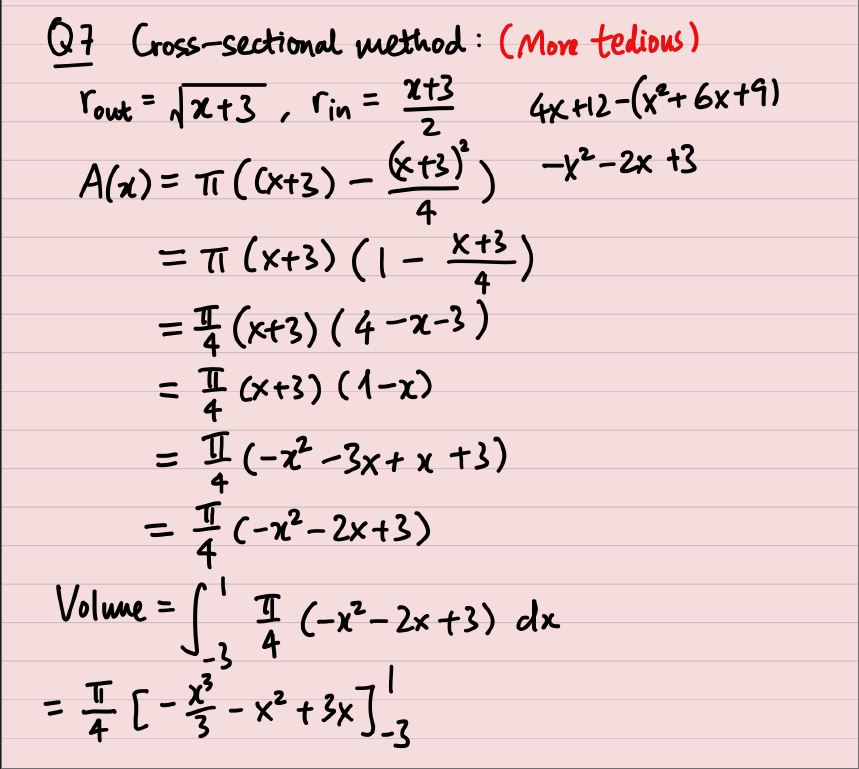 Q7 Cross-sectional method: (More tedious)
r_out = √(x+3) , r_in = (x+3)/2
4x+12-(x²+6x+9)
A(x) = π((x+3) - (x+3)²/4)
-x²-2x+3
= π(x+3)(1 - (x+3)/4)
= π/4 (x+3)(4-x-3)
= π/4 (x+3)(1-x)
= π/4 (-x²-3x+x+3)
= π/4 (-x²-2x+3)
Volume = ∫_{-3}^{1} π/4 (-x²-2x+3) dx
= π/4 [-x³/3 - x² + 3x]_{-3}^{1}